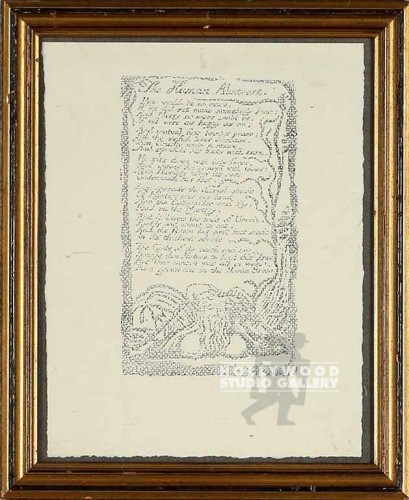 The Human Abstract.
Pity would be no more,
If we did not make somebody Poor:
And Mercy no more could be,
If all were as happy as we;
And mutual fear brings peace;
Till the selfish loves increase.
Then Cruelty knits a snare,
And spreads his baits with care.
He sits down with holy fears,
And waters the ground with tears:
Then Humility takes its root
Underneath his foot.
Soon spreads the dismal shade
Of Mystery over his head;
And the Catterpiller and Fly,
Feed on the Mystery.
And it bears the fruit of Deceit,
Ruddy and sweet to eat;
And the Raven his nest has made
In its thickest shade.
The Gods of the earth and sea,
Sought thro' Nature to find this Tree
But their search was all in vain:
There grows one in the Human Brain
HOLLYWOOD
STUDIO GALLERY